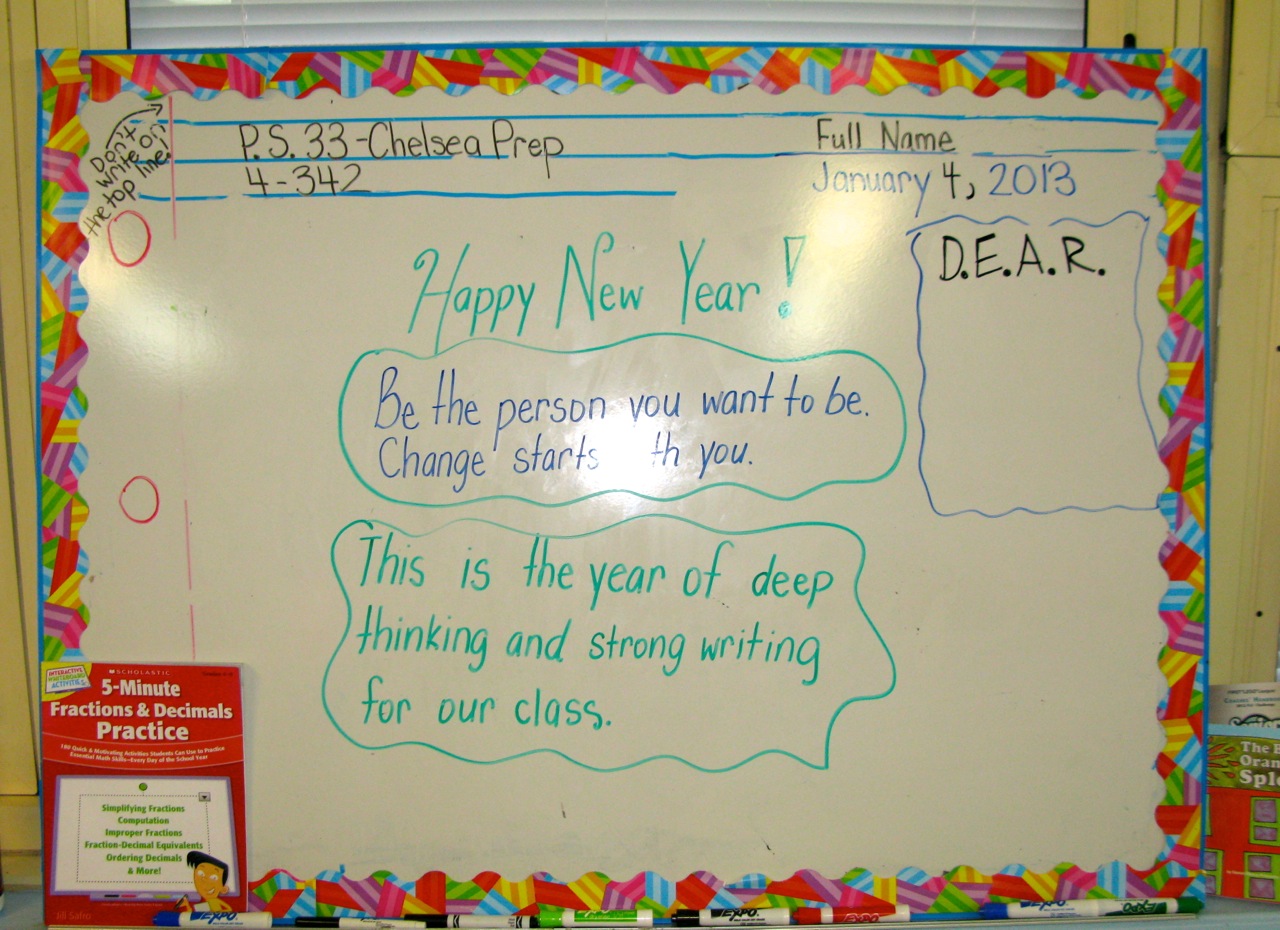 Don't
write on
the top line!
P.S. 33-Chelsea Prep
Full Name
4-342
January 4, 2013
D.E.A.R.
Happy New Year!
Be the person you want to be.
Change starts th you.
This is the year of deep
thinking and strong writing
for our class.
INTERACTIVE
WHITEBOARD
ACTIVITIES
SCHOLASTIC
5-Minute
Fractions & Decimals
Practice
180 Quick & Motivating Activities Students Can Use to Practice
Essential Math Skills—Every Day of the School Year
Simplifying Fractions
Computation
Improper Fractions
Fraction-Decimal Equivalents
Ordering Decimals
& More!
Jill Safro
The
Oran
Splo
EXPO
EXPO
EXPO
EXPO
EXPO